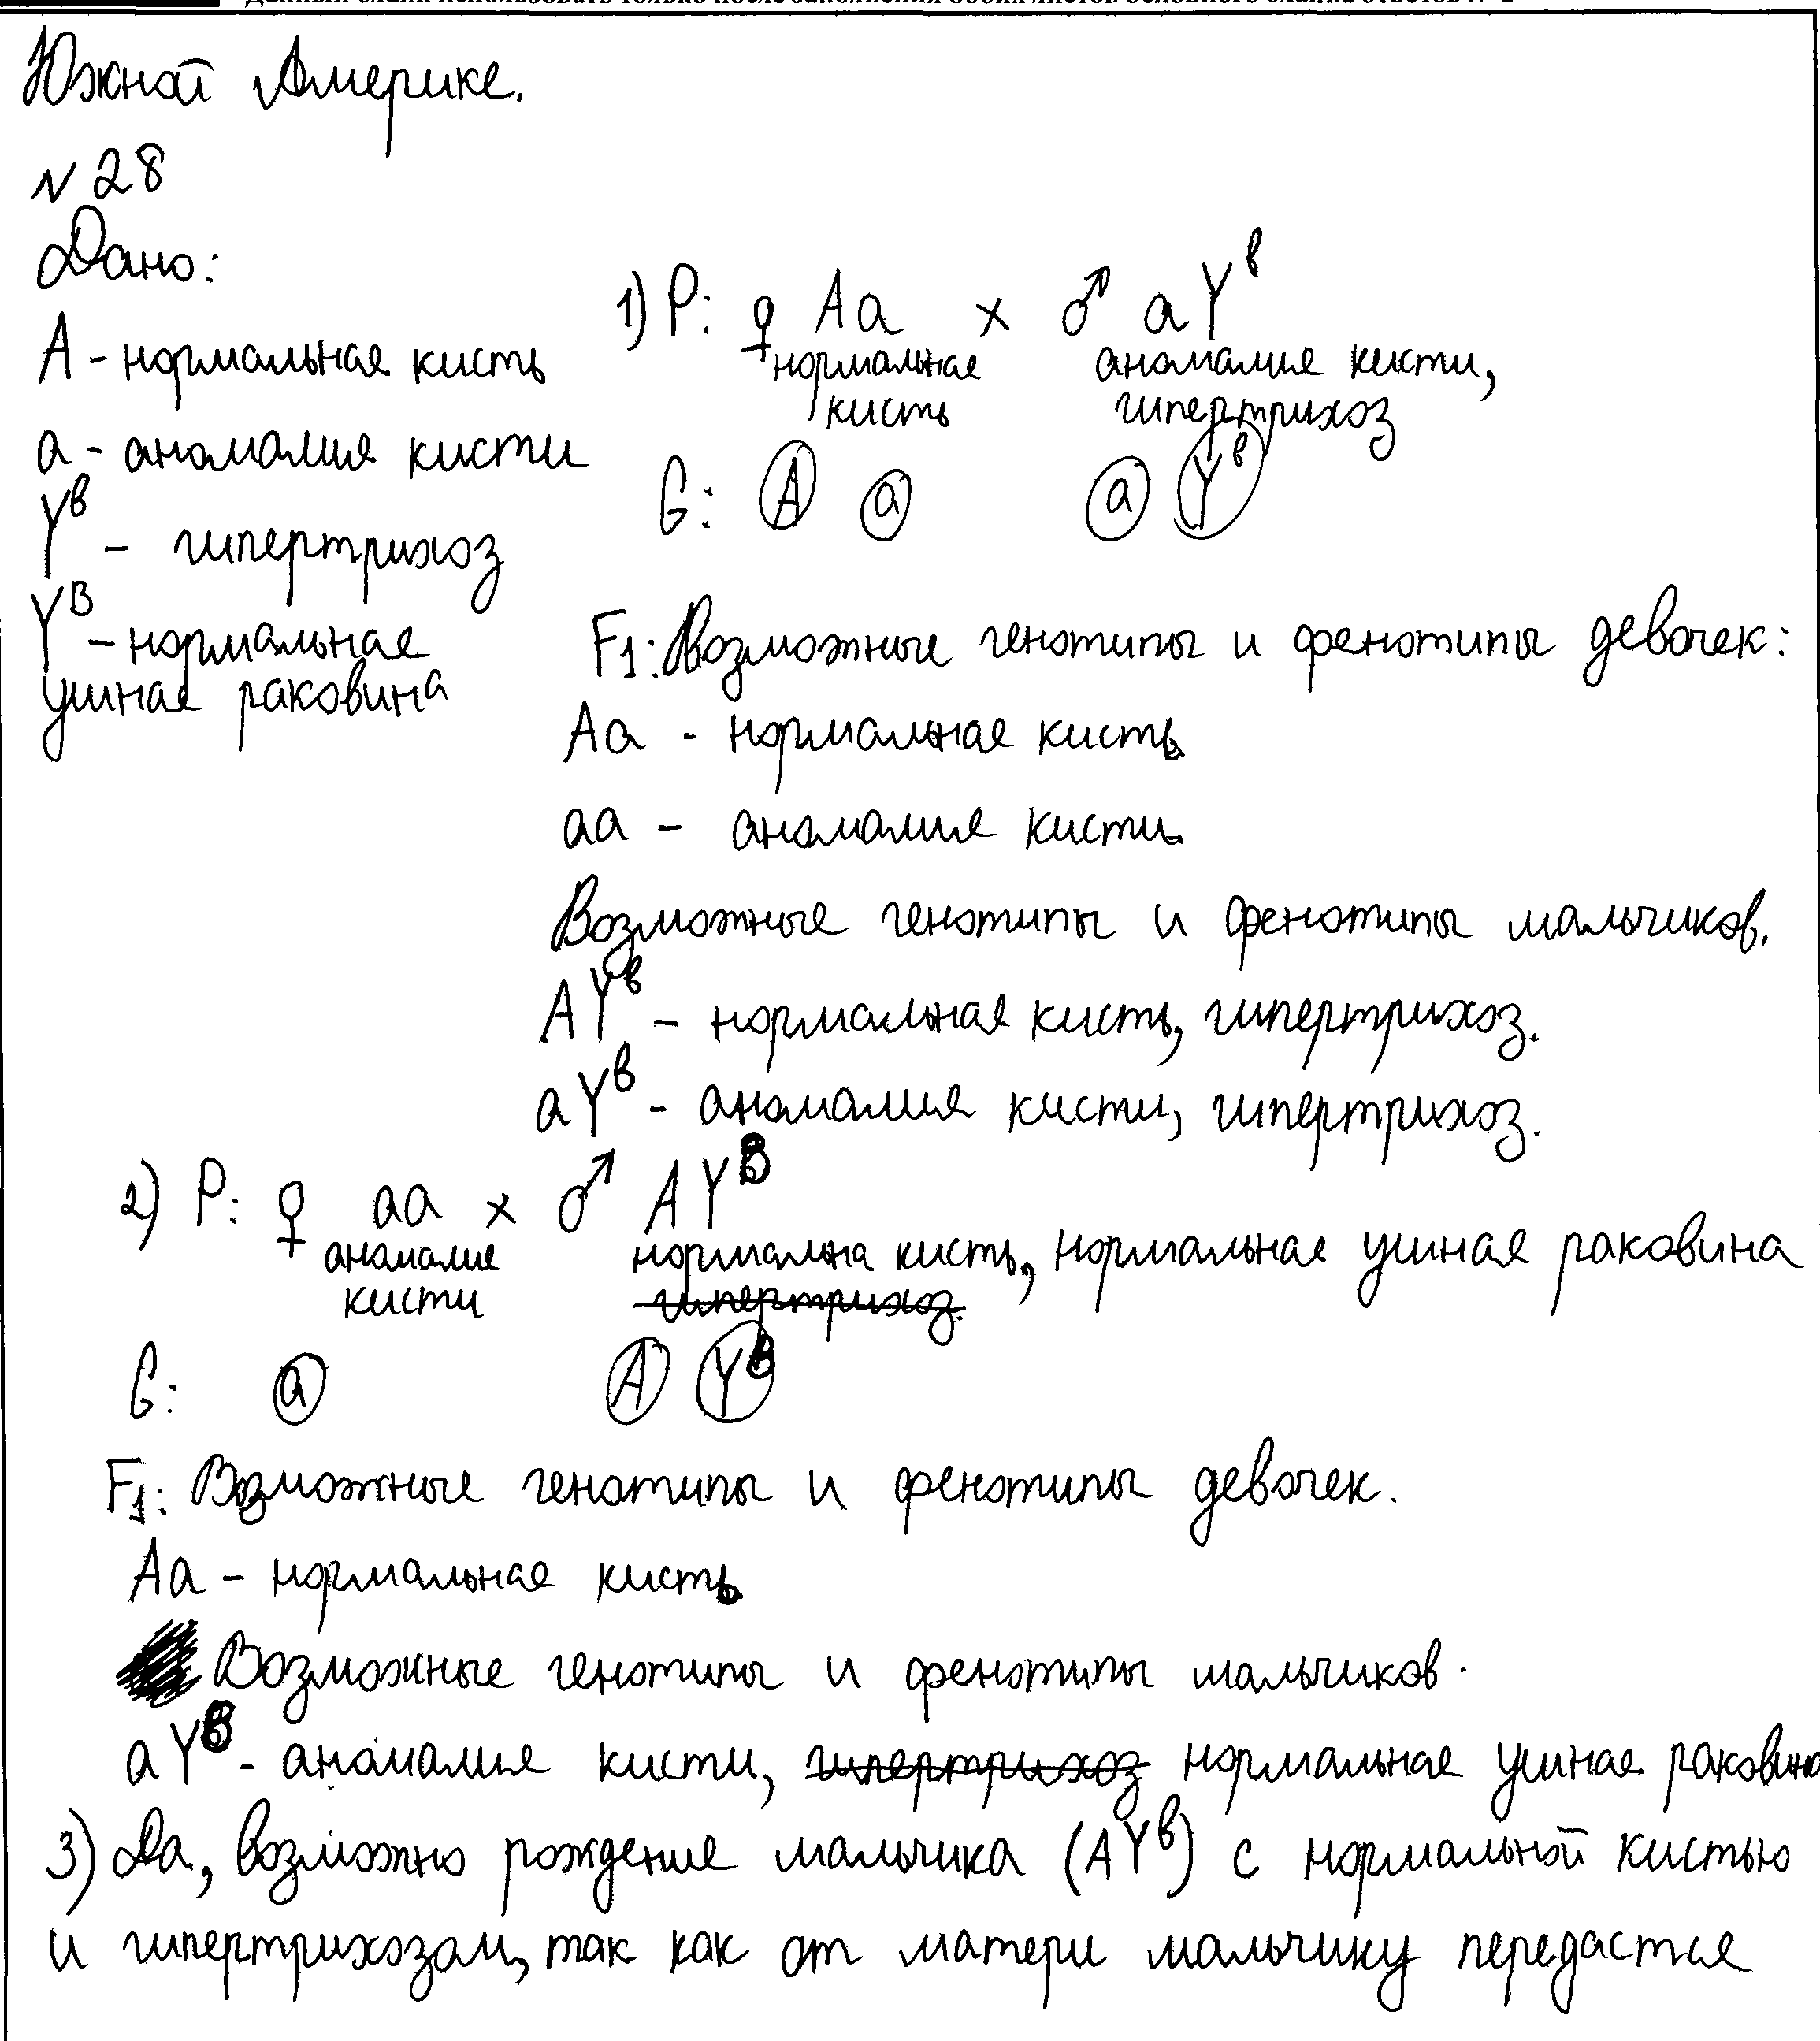 Данный бланк использовать только после заполнения обоих листов основного бланка ответов № 2
Южной Америке.
№ 28
Дано:
A - нормальная кисть
a - аномалия кисти
Yᵇ - гипертрихоз
Yᴮ - нормальная
ушная раковина
1) P: ♀ Aa × ♂ aYᵇ
нормальная кисть
аномалия кисти, гипертрихоз
G: A a a Yᵇ
F1: Возможные генотипы и фенотипы девочек:
Aa - нормальная кисть
aa - аномалия кисти
Возможные генотипы и фенотипы мальчиков.
AYᵇ - нормальная кисть, гипертрихоз.
aYᵇ - аномалия кисти, гипертрихоз.
2) P: ♀ aa × ♂ AYᴮ
аномалия кисти
нормальна кисть, нормальная ушная раковина
гипертрихоз.
G: a A Yᴮ
F1: Возможные генотипы и фенотипы девочек.
Aa - нормальная кисть
Возможные генотипы и фенотипы мальчиков.
aYᴮ - аномалия кисти, гипертрихоз нормальная ушная раковина
3) Да, возможно рождение мальчика (AYᵇ) с нормальной кистью
и гипертрихозом, так как от матери мальчику передастся